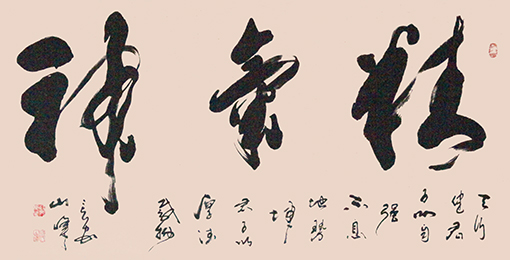 精氣神
天行
健君
子以自
强
不息
地勢
坤
君子以
厚德
載物